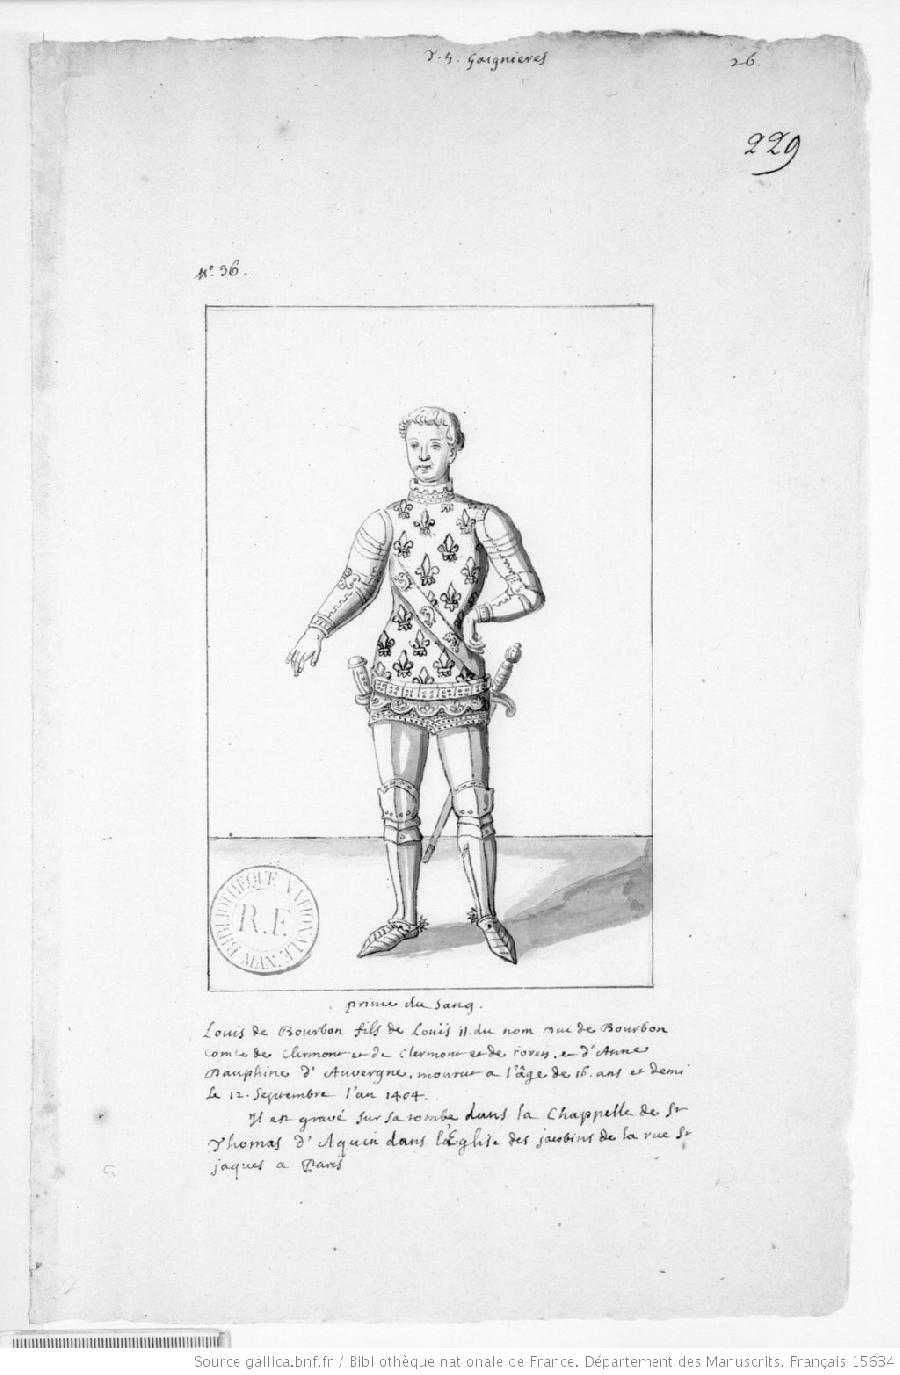 Gaignieres
26
229
N° 36.
BIBLIOTHÈQUE NATIONALE
R.F.
MAN.
prince du Sang.
Louis de Bourbon fils de Louis II. du nom duc de Bourbon
Comte de Clermont et de Clermont et de Forest, et d'Anne
Dauphine d'Auvergne, mourut a l'âge de 16. ans et demi
Le 12. Septembre l'an 1404.
Il est gravé sur sa tombe dans la Chappelle de St
Thomas d'Aquin dans l'Eglise des jacobins de la rue St
jaques a Paris
Source gallica.bnf.fr / Bibliothèque nationale de France. Département des Manuscrits. Français 15634